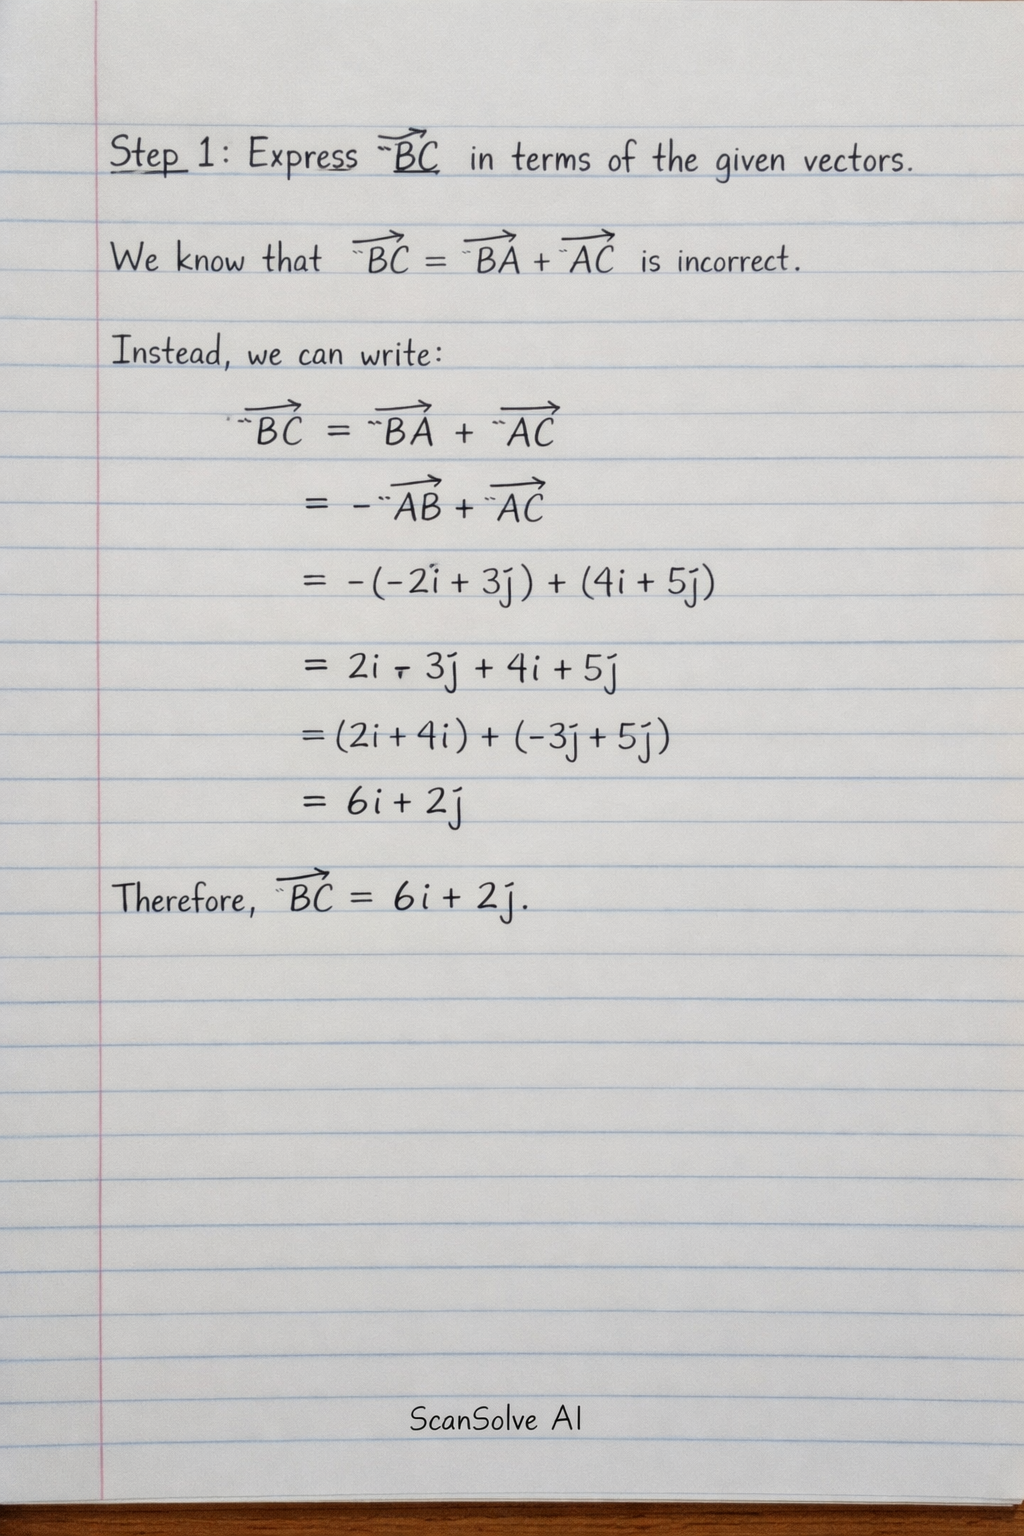 Step 1: Express $\overrightarrow{BC}$ in terms of the given vectors.
We know that $\overrightarrow{BC}$ = $\overrightarrow{BA}$ + $\overrightarrow{AC}$ is incorrect.
Instead, we can write:
$\overrightarrow{BC}$ = $\overrightarrow{BA}$ + $\overrightarrow{AC}$
= -$\overrightarrow{AB}$ + $\overrightarrow{AC}$
= -(-2i + 3j) + (4i + 5j)
= 2i - 3j + 4i + 5j
= (2i + 4i) + (-3j + 5j)
= 6i + 2j
Therefore, $\overrightarrow{BC}$ = 6i + 2j.
ScanSolve AI